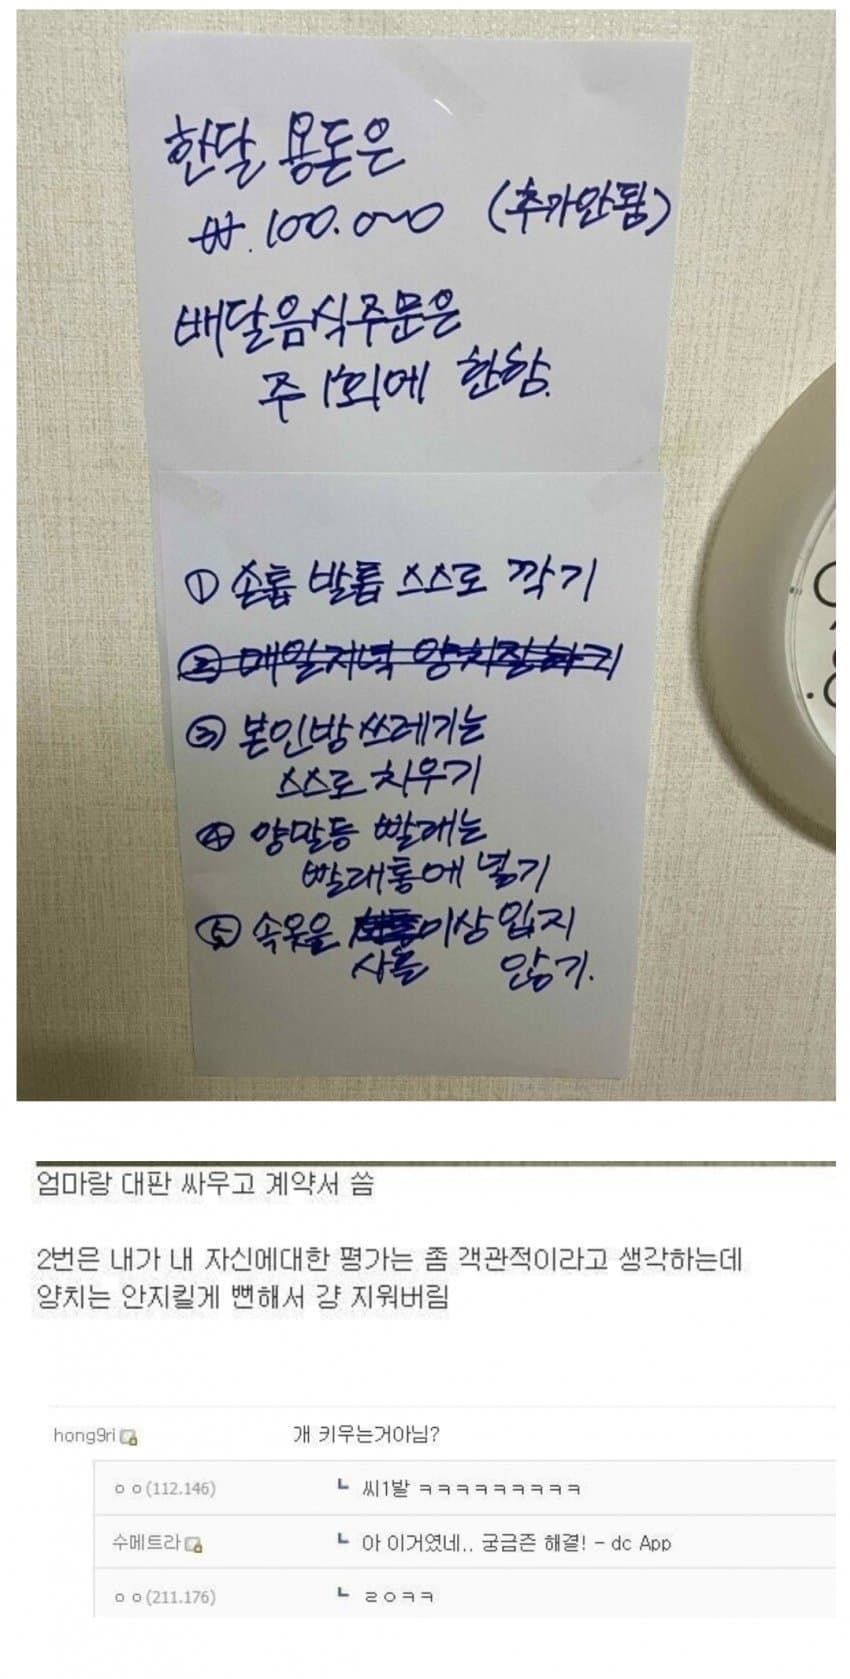 한달 용돈은
₩.100.000 (추가안됨)
배달음식주문은
주 1회에 한함.
① 손톱 발톱 스스로 깍기
② 매일저녁 양치질하기
③ 본인방 쓰레기는
스스로 치우기
④ 양말등 빨래는
빨래통에 넣기
⑤ 속옷을 이상 입지
사흘 않기.
엄마랑 대판 싸우고 계약서 씀
2번은 내가 내 자신에대한 평가는 좀 객관적이라고 생각하는데
양치는 안지킬게 뻔해서 걍 지워버림
hong9ri 개 키우는거아님?
ㅇㅇ(112.146) ┗ 씨1발 ㅋㅋㅋㅋㅋㅋㅋㅋㅋ
수메트라 ┗ 아 이거였네.. 궁금즌 해결! - dc App
ㅇㅇ(211.176) ┗ ㄹㅇㅋㅋ